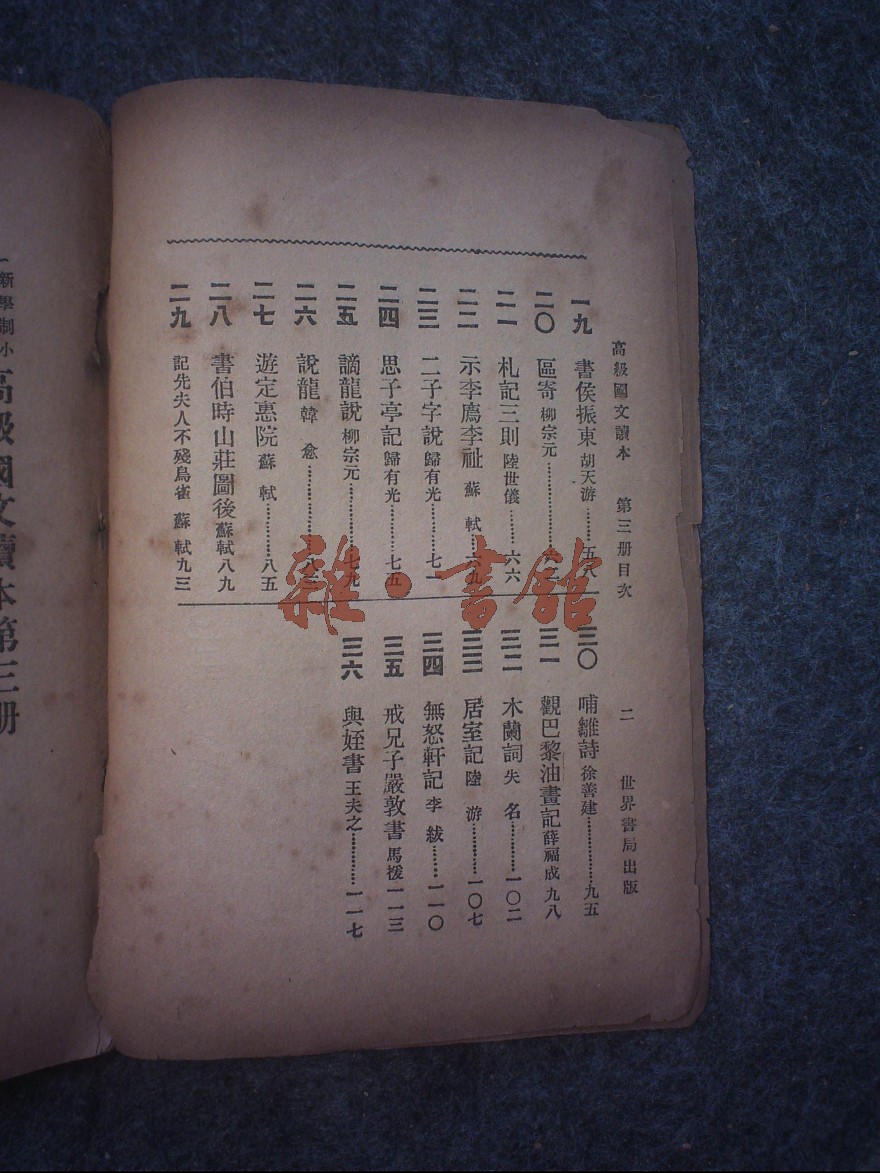 高級國文讀本　第三册目次　二　世界書局出版
一九　書侯振東　胡天游………五八
二〇　區寄　柳宗元………六
二一　札記三則　陸世儀………六六
二二　示李廌李祉　蘇軾………六九
二三　二子字說　歸有光………七一
二四　思子亭記　歸有光………七五
二五　謫龍說　柳宗元………七九
二六　說龍　韓愈………八
二七　遊定惠院　蘇軾………八五
二八　書伯時山莊圖後　蘇軾　八九
二九　記先夫人不殘鳥雀　蘇軾　九三
三〇　哺雛詩　徐善建………九五
三一　觀巴黎油畫記　薛福成　九八
三二　木蘭詞　失名………一〇二
三三　居室記　陸游………一〇七
三四　無怒軒記　李紱………一一〇
三五　戒兄子嚴敦書　馬援　一一三
三六　與姪書　王夫之………一一七
新學制小
高級國文讀本第三册
雜·書館